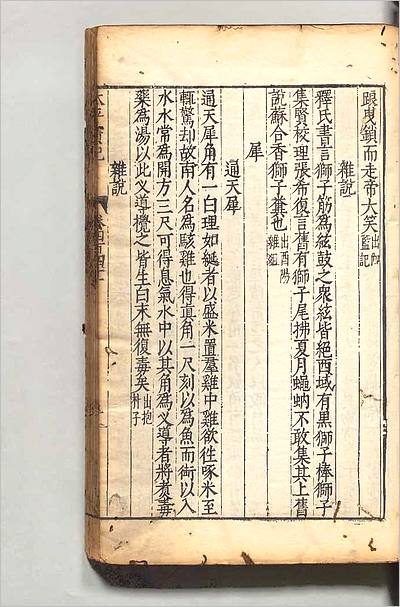 跟曳鎖而走帝大笑出伽藍記
雜說
釋氏書言獅子筋為絃鼓之衆絃皆絕西域有黑獅子棒獅子
集賢校理張希復言舊有獅子尾拂夏月蠅蚋不敢集其上舊
說蘇合香獅子糞也出酉陽雜俎
犀
通天犀
通天犀角有一白理如綖者以盛米置羣雞中雞欲徃啄米至
輒驚却故南人名為駭雞也得真角一尺刻以為魚而銜以入
水水常為開方三尺可得息氣水中以其角為义導者將煑毒
藥為湯以此义導攪之皆生白末無復毒矣出抱朴子
雜說
太平廣記